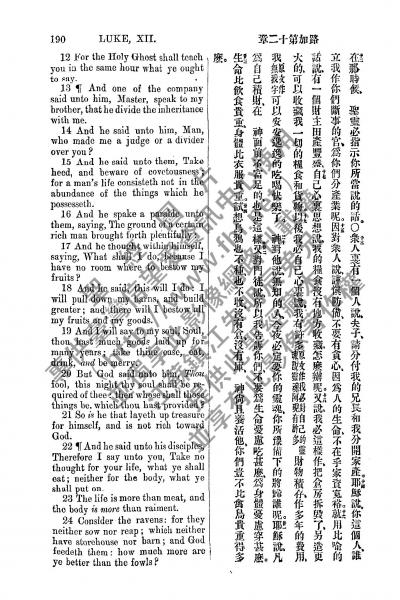 190 LUKE, XII.
12 For the Holy Ghost shall teach
you in the same hour what ye ought
to say.
13 ¶ And one of the company
said unto him, Master, speak to my
brother, that he divide the inheritance
with me.
14 And he said unto him, Man,
who made me a judge or a divider
over you?
15 And he said unto them, Take
heed, and beware of covetousness:
for a man's life consisteth not in the
abundance of the things which he
possesseth.
16 And he spake a parable unto
them, saying, The ground of a certain
rich man brought forth plentifully:
17 And he thought within himself,
saying, What shall I do, because I
have no room where to bestow my
fruits?
18 And he said, this will I do: I
will pull down my barns, and build
greater; and there will I bestow all
my fruits and my goods.
19 And I will say to my soul, Soul,
thou hast much goods laid up for
many years; take thine ease, eat,
drink, and be merry.
20 But God said unto him, Thou
fool, this night thy soul shall be re-
quired of thee: then whose shall those
things be, which thou hast provided?
21 So is he that layeth up treasure
for himself, and is not rich toward
God.
22 ¶ And he said unto his disciples,
Therefore I say unto you, Take no
thought for your life, what ye shall
eat; neither for the body, what ye
shall put on.
23 The life is more than meat, and
the body is more than raiment.
24 Consider the ravens: for they
neither sow nor reap; which neither
have storehouse nor barn; and God
feedeth them: how much more are
ye better than the fowls?
路加第十二章
在那時候、聖靈必指示你所當說的話。○衆人裏有一個人說、夫子、請分付我的兄長和我分開家產。耶穌說、你這個人、誰
立我作你們斷事的官、爲你們分產業呢。因對衆人說、謹愼防備、不要有貪心、因爲人的生命、不在乎家資寬裕。就用比喩的
話說、有一個財主田產豐盛、自己心裏思想說、我的糧食沒有地方收藏、怎麼辦呢。又說、我必這樣作、把倉房拆毀了、另造更
大的、可以收藏我一切的糧食和貨物、以後我必自己心裏說、我有許多財物積存、作多年的費用、
我可以安安逸逸的吃喝快樂了。神對他說、無知的人、今夜必定要你的靈魂、你所預備下的將歸誰呢。耶穌說、凡
爲自己積財、在神面前不富足的、也是這樣。又對門徒說、所以我告訴你們、不要爲生命憂慮吃甚麼、爲身體憂慮穿甚麼。
生命比飲食貴重、身體比衣服貴重。試想烏鴉也不種、也不收、沒有倉、沒有庫、神尙且養活他、你們豈不比禽鳥貴重得多
麼。